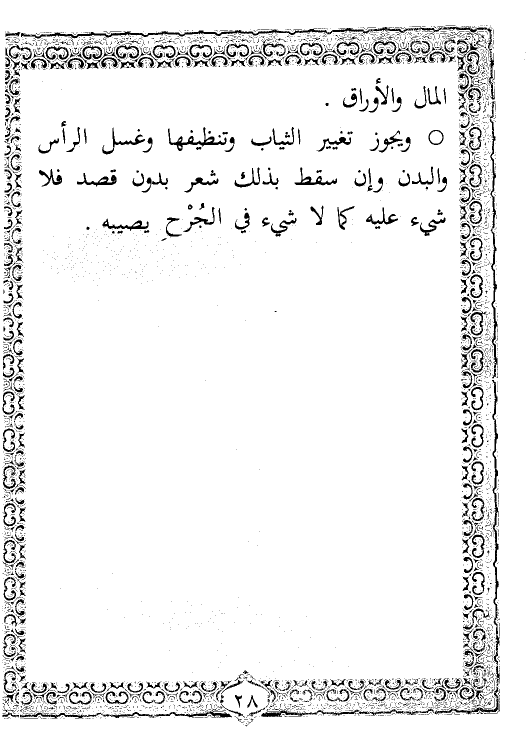 المال والأوراق .
○ ويجوز تغيير الثياب وتنظيفها وغسل الرأس
والبدن وإن سقط بذلك شعر بدون قصد فلا
شيء عليه كما لا شيء في الجُرْحِ يصيبه .
٢٨